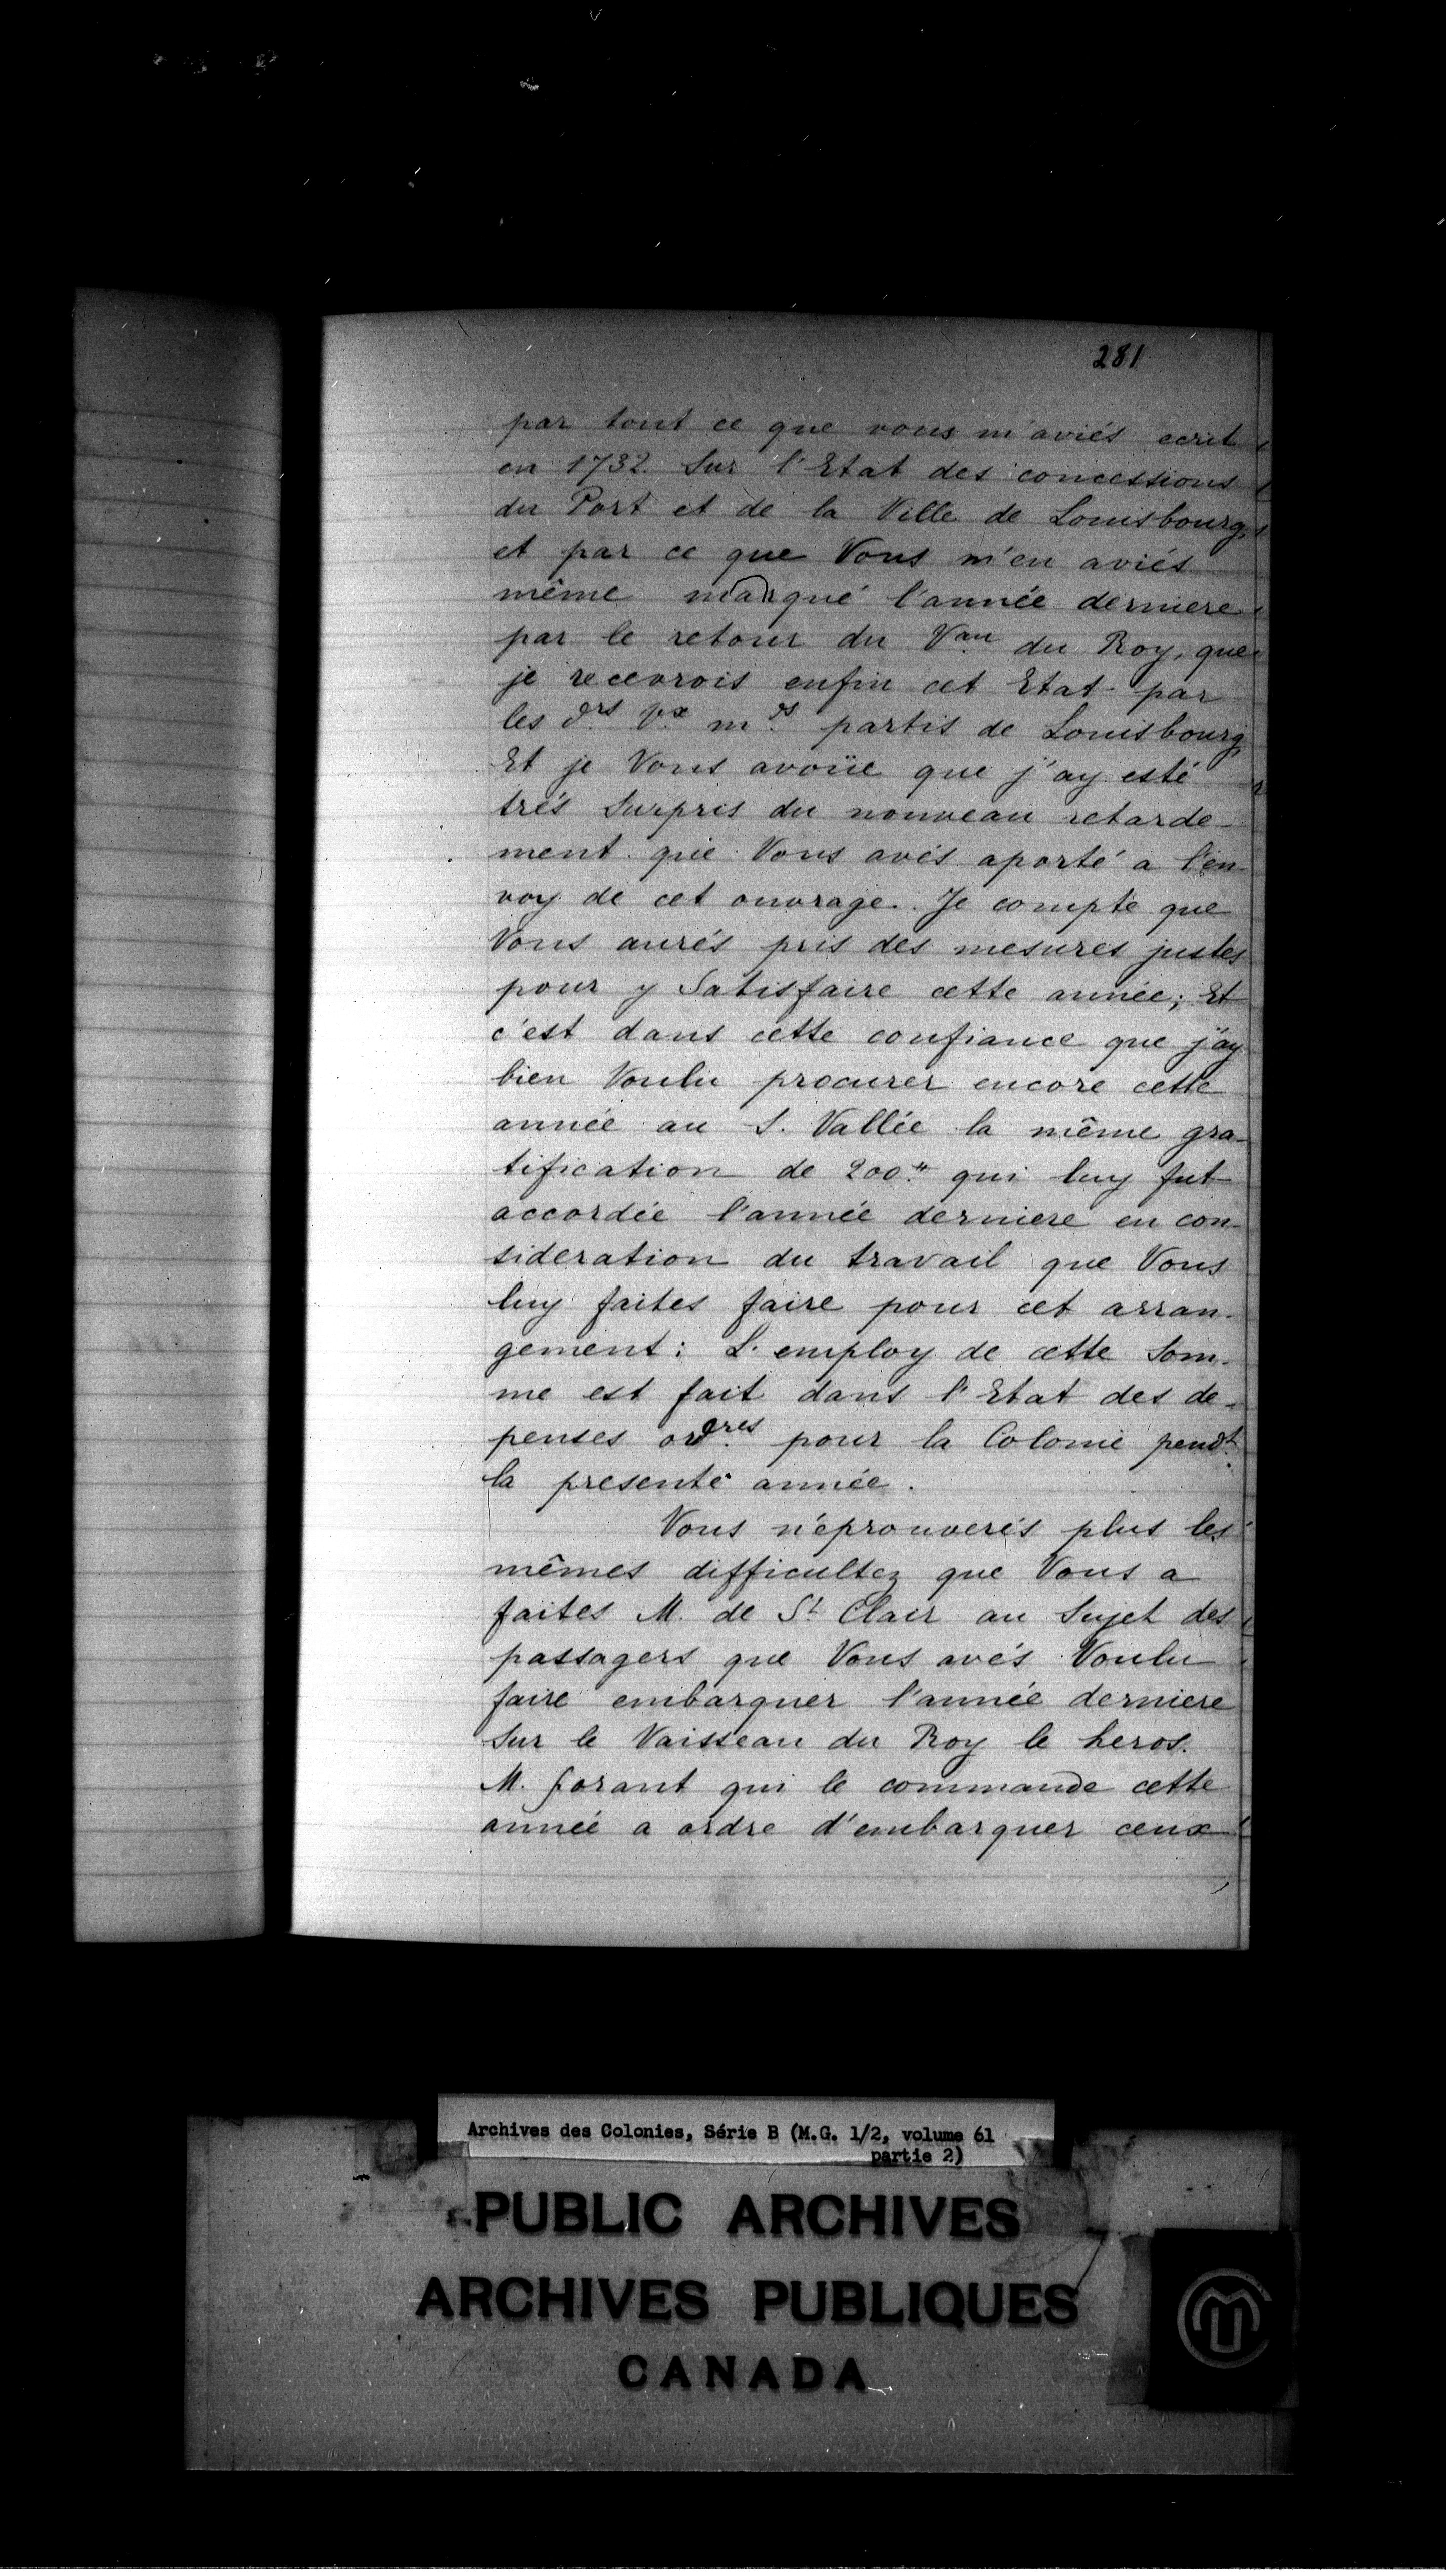 281
par tout ce que vous m'aviés ecrit
en 1732. Sur l'Etat des concessions
du Port et de la Ville de Louisbourg,
et par ce que Vous m'en aviés
même marqué l'année derniere
par le retour du Vau du Roy, que
je recevrois enfin cet Etat par
les drs Vx mds partis de Louisbourg,
Et je Vous avoüe que j'ay esté
trés Surpris du nouveau retarde-
ment que Vous avés aporté a l'en-
voy de cet ouvrage. Je compte que
Vous aurés pris des mesures justes
pour y Satisfaire cette année; Et
c'est dans cette confiance que j'ay
bien Voulu procurer encore cette
année au S. Vallée la même gra-
tification de 200.# qui luy fut
accordée l'année derniere en con-
sideration du travail que Vous
luy faites faire pour cet arran-
gement: L'employ de cette Som-
me est fait dans l'Etat des de-
penses ordres pour la Colonie pendt
la presente année.
Vous n'eprouverés plus les
mêmes difficultez que Vous a
faites M. de St Clair au Sujet des
passagers que Vous avés Voulu
faire embarquer l'année derniere
Sur le Vaisseau du Roy le heros.
M. forant qui le commande cette
année a ordre d'embarquer ceux
Archives des Colonies, Série B (M.G. 1/2, volume 61
partie 2)
PUBLIC ARCHIVES
ARCHIVES PUBLIQUES
CANADA